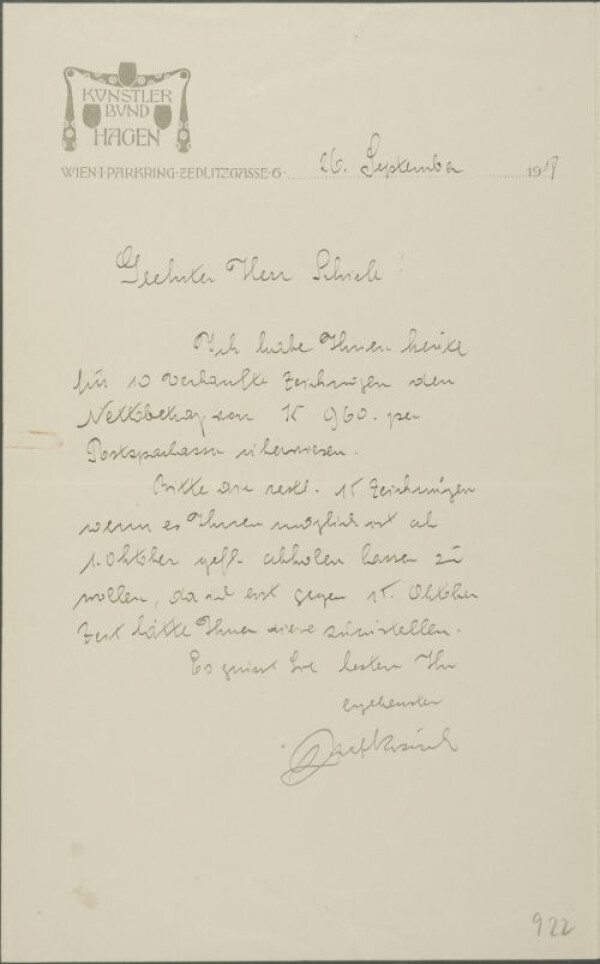 KÜNSTLER
BUND
HAGEN
WIEN·I·PARKRING·ZEDLITZGASSE·6· 26. September 1918
Geehrter Herr Schiele
Ich habe Ihnen heute
für 10 verkaufte Zeichnungen den
Nettobetrag von K 960. per
Postsparkassa überwiesen.
Bitte die restl. 15 Zeichnungen
wenn es Ihnen möglich ist ab
1. Oktober gefl. abholen lassen zu
wollen, da ich erst gegen 15. Oktober
Zeit hätte Ihnen diese zuzustellen.
Es grüsst Sie bestens Ihr
ergebenster
922